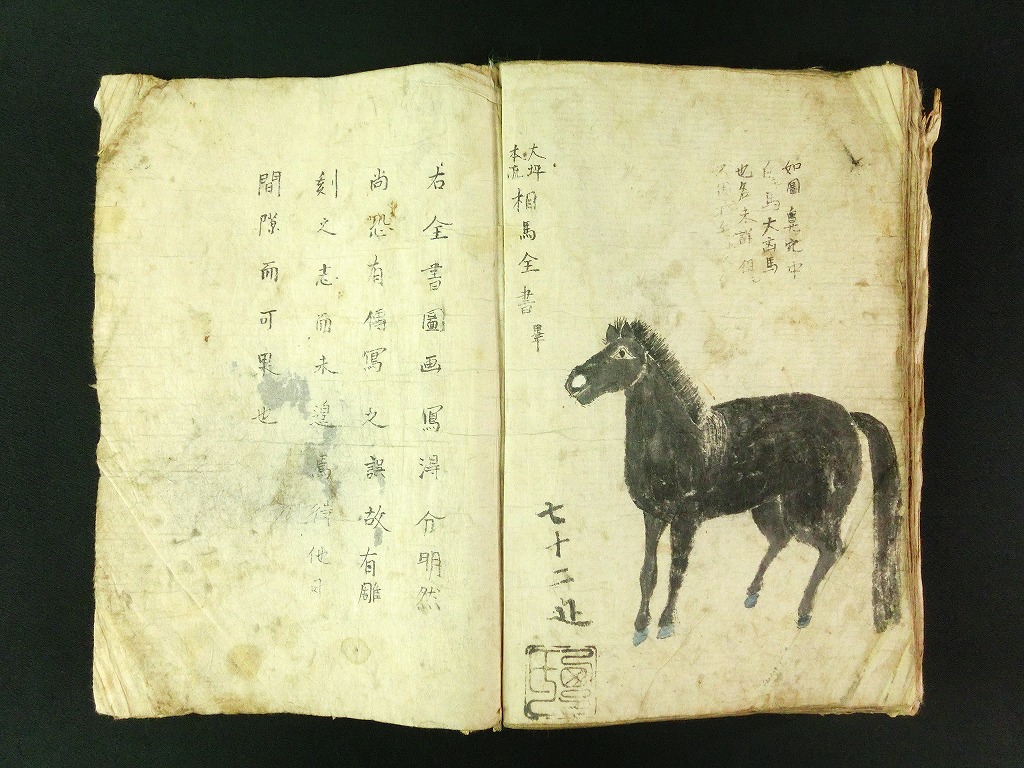 如圖鼻白中
馬大西馬
也名未詳
大坪
本流
相馬全書 畢
七十二
右全書圖画寫得分明然
尚恐有傳寫之誤故有雕
刻之志而未遑焉待他日
間隙而可果也